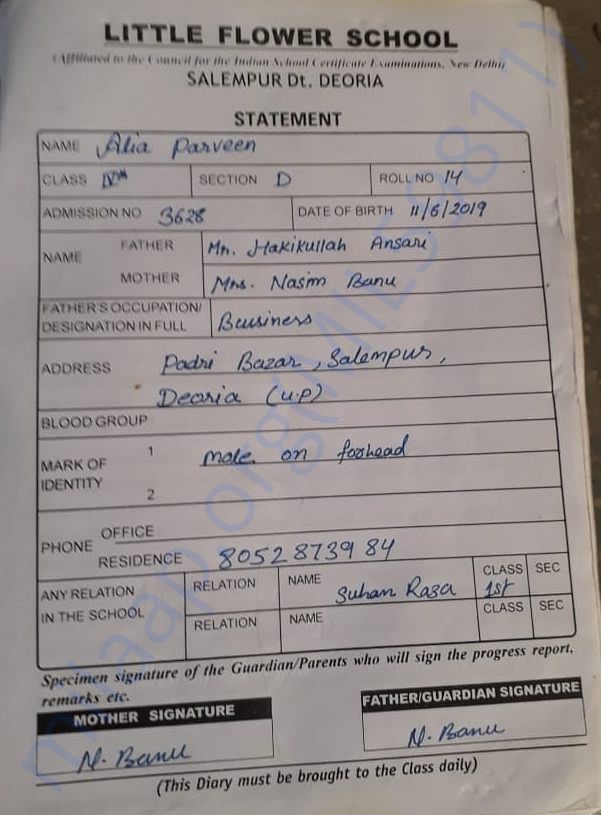 LITTLE FLOWER SCHOOL
(Affiliated to the Council for the Indian School Certificate Examinations, New Delhi)
SALEMPUR Dt. DEORIA
STATEMENT
NAME Alia Parveen
CLASS IVth SECTION D ROLL NO 14
ADMISSION NO 3628 DATE OF BIRTH 11/6/2019
NAME FATHER Mr. Hakikullah Ansari
MOTHER Mrs. Nasim Banu
FATHER'S OCCUPATION/
DESIGNATION IN FULL Beusiness
ADDRESS Padri Bazar, Salempur,
Deoria (U.P)
BLOOD GROUP
MARK OF IDENTITY 1 mole on forhead
2
PHONE OFFICE
RESIDENCE 8052873984
ANY RELATION IN THE SCHOOL RELATION NAME Suhan Raza CLASS 1st SEC
RELATION NAME CLASS SEC
Specimen signature of the Guardian/Parents who will sign the progress report,
remarks etc.
MOTHER SIGNATURE FATHER/GUARDIAN SIGNATURE
N. Banu N. Banu
(This Diary must be brought to the Class daily)